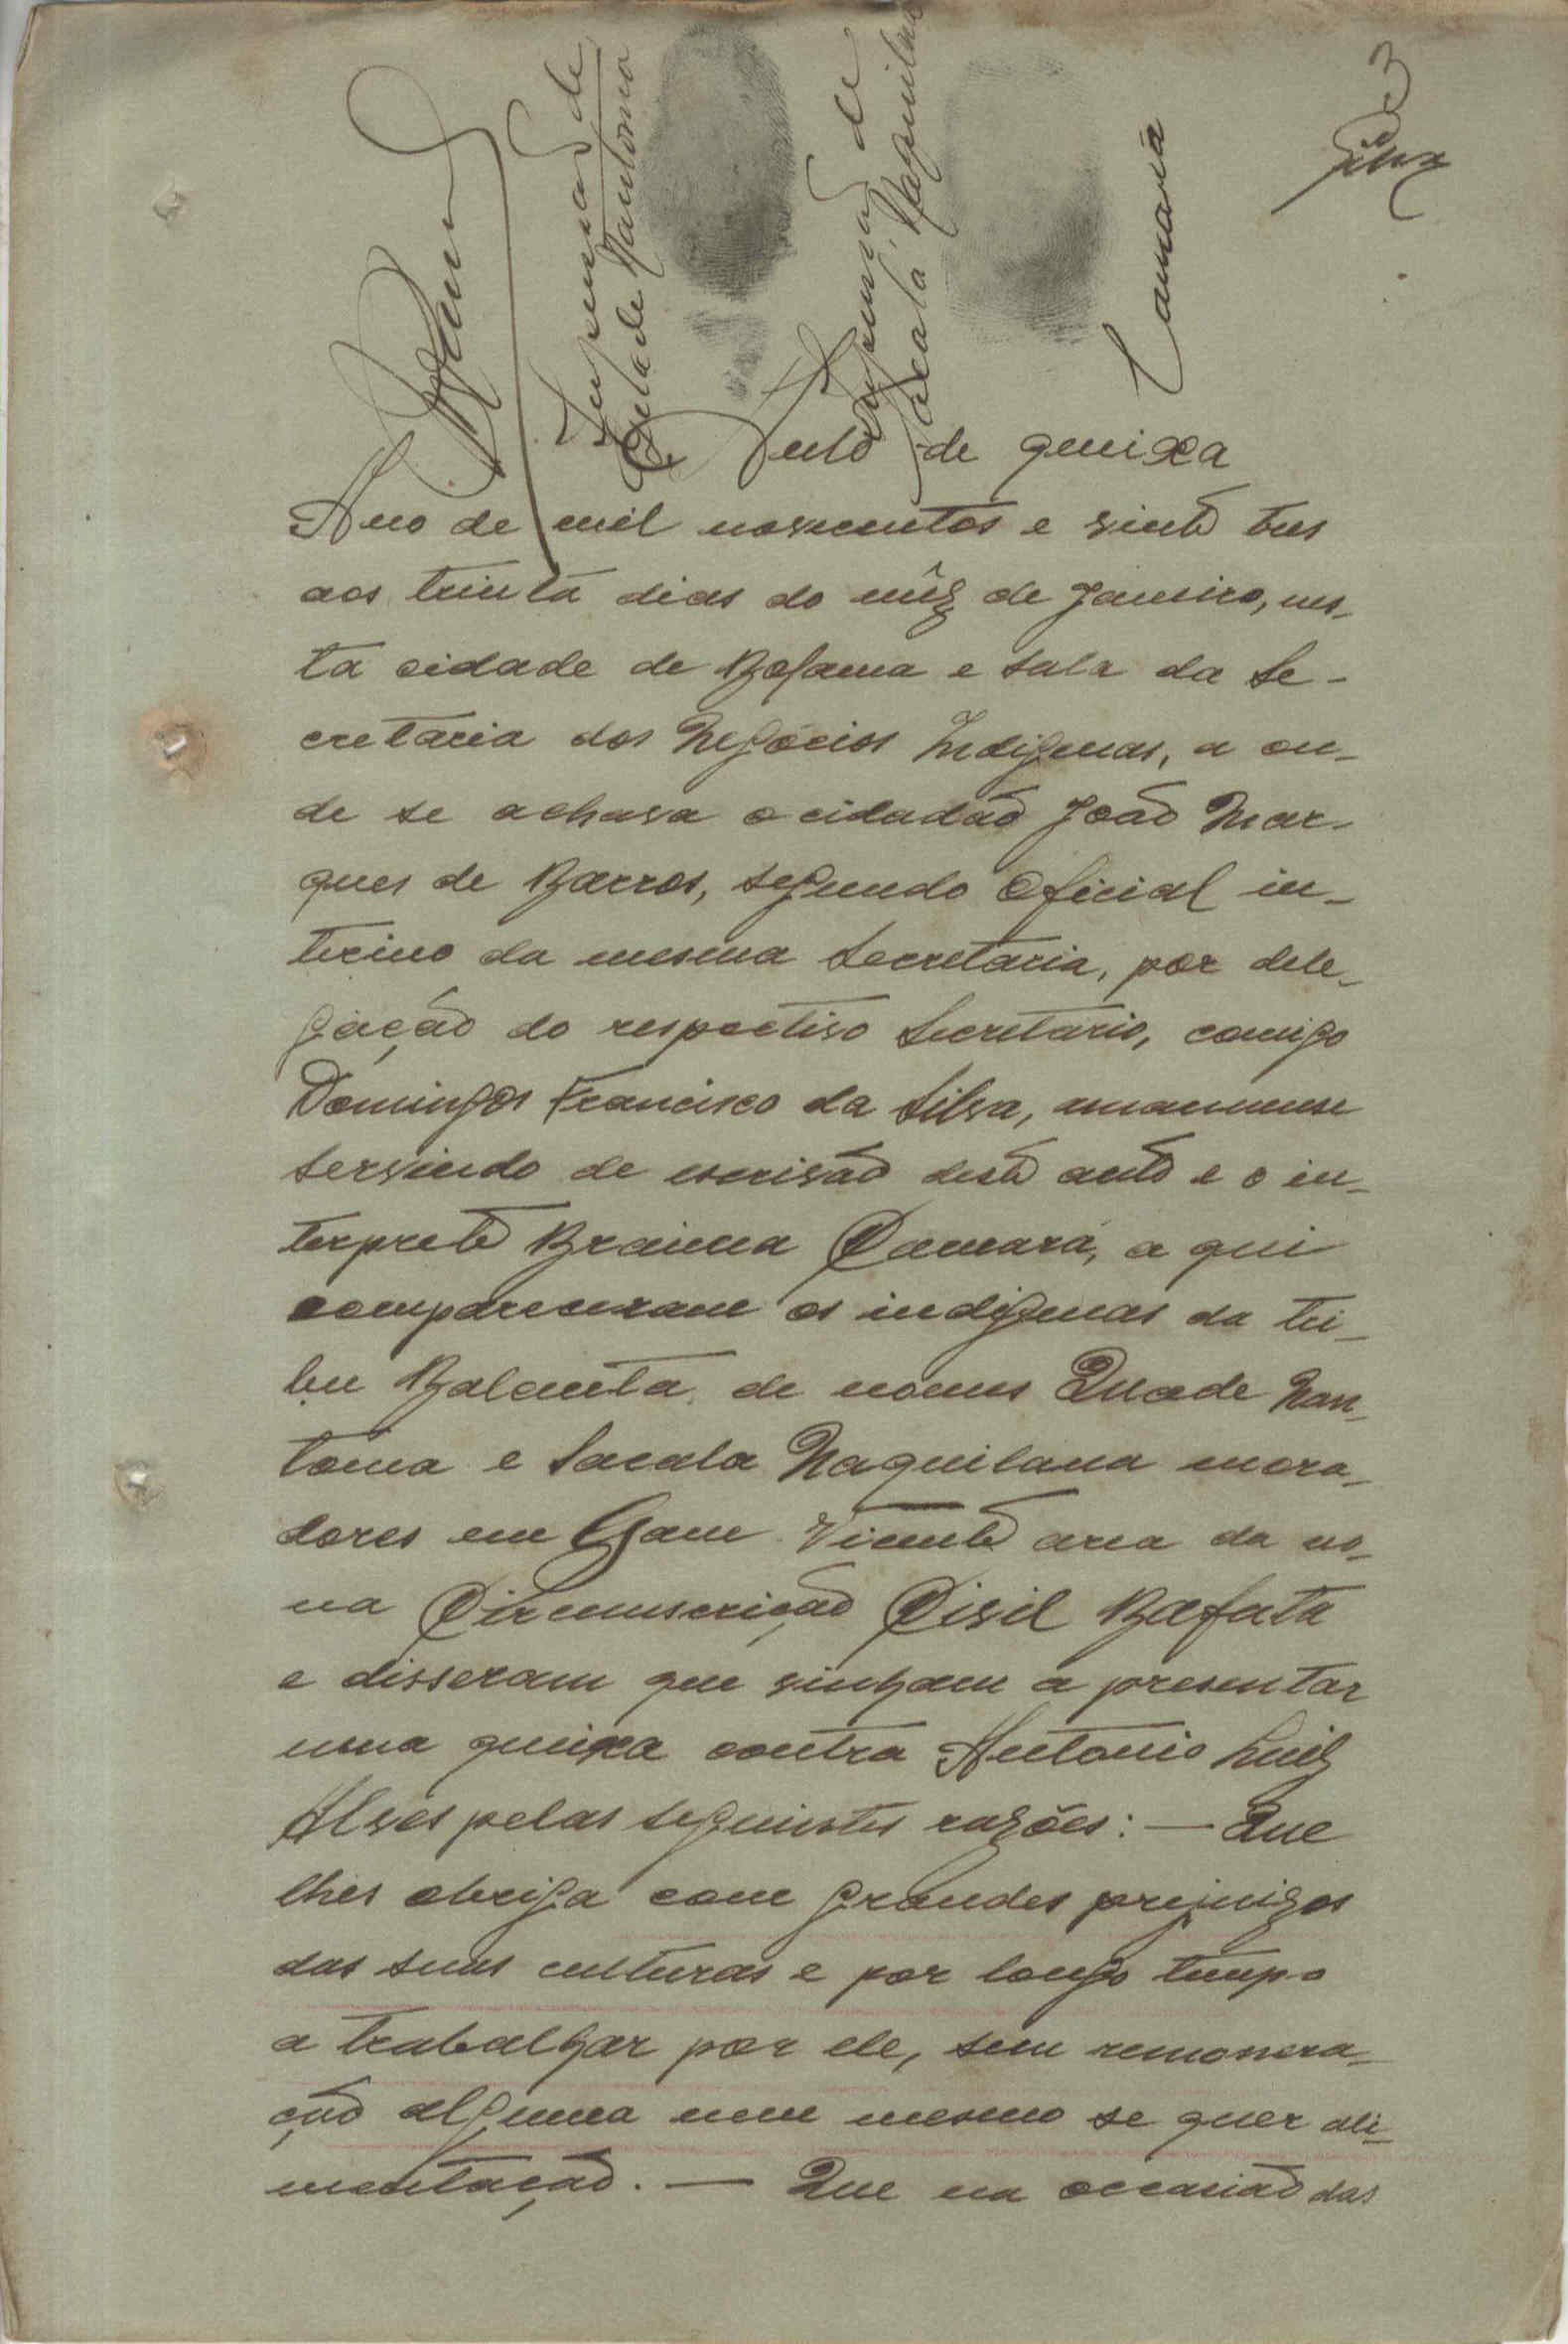 3
Silva
Barros
Impressão de
Quade Nantoma
Impressão de
Sacalá Naquilana
Camará
Auto de queixa
Ano de mil novecentos e vinte tres
aos trinta dias do mêz de Janeiro, nes-
ta cidade de Bolama e sala da Se-
cretaria dos Negócios Indigenas, a on-
de se achava o cidadão João Mar-
ques de Barros, segundo Oficial in-
terino da mesma Secretaria, por dele-
gação do respectivo Secretario, comigo
Domingos Francisco da Silva, amanuense
servindo de escrivão deste auto e o in-
terprete Braima Camará, a qui
compareceram os indigenas da tri-
bu Balanta, de nomes Quade Nan-
toma e Sacala Naquilana mora-
dores em Gam Vicente area da no-
na Circunscrição Civil Bafata
e disseram que vinham a presentar
uma queixa contra Antonio Luiz
Alves pelas seguintes razões: — Que
lhes obriga com grandes prejuizos
das suas culturas e por longo tempo
a trabalhar por ele, sem remonera-
ção alguma nem mesmo se quer ali-
mentação. — Que na occasião das